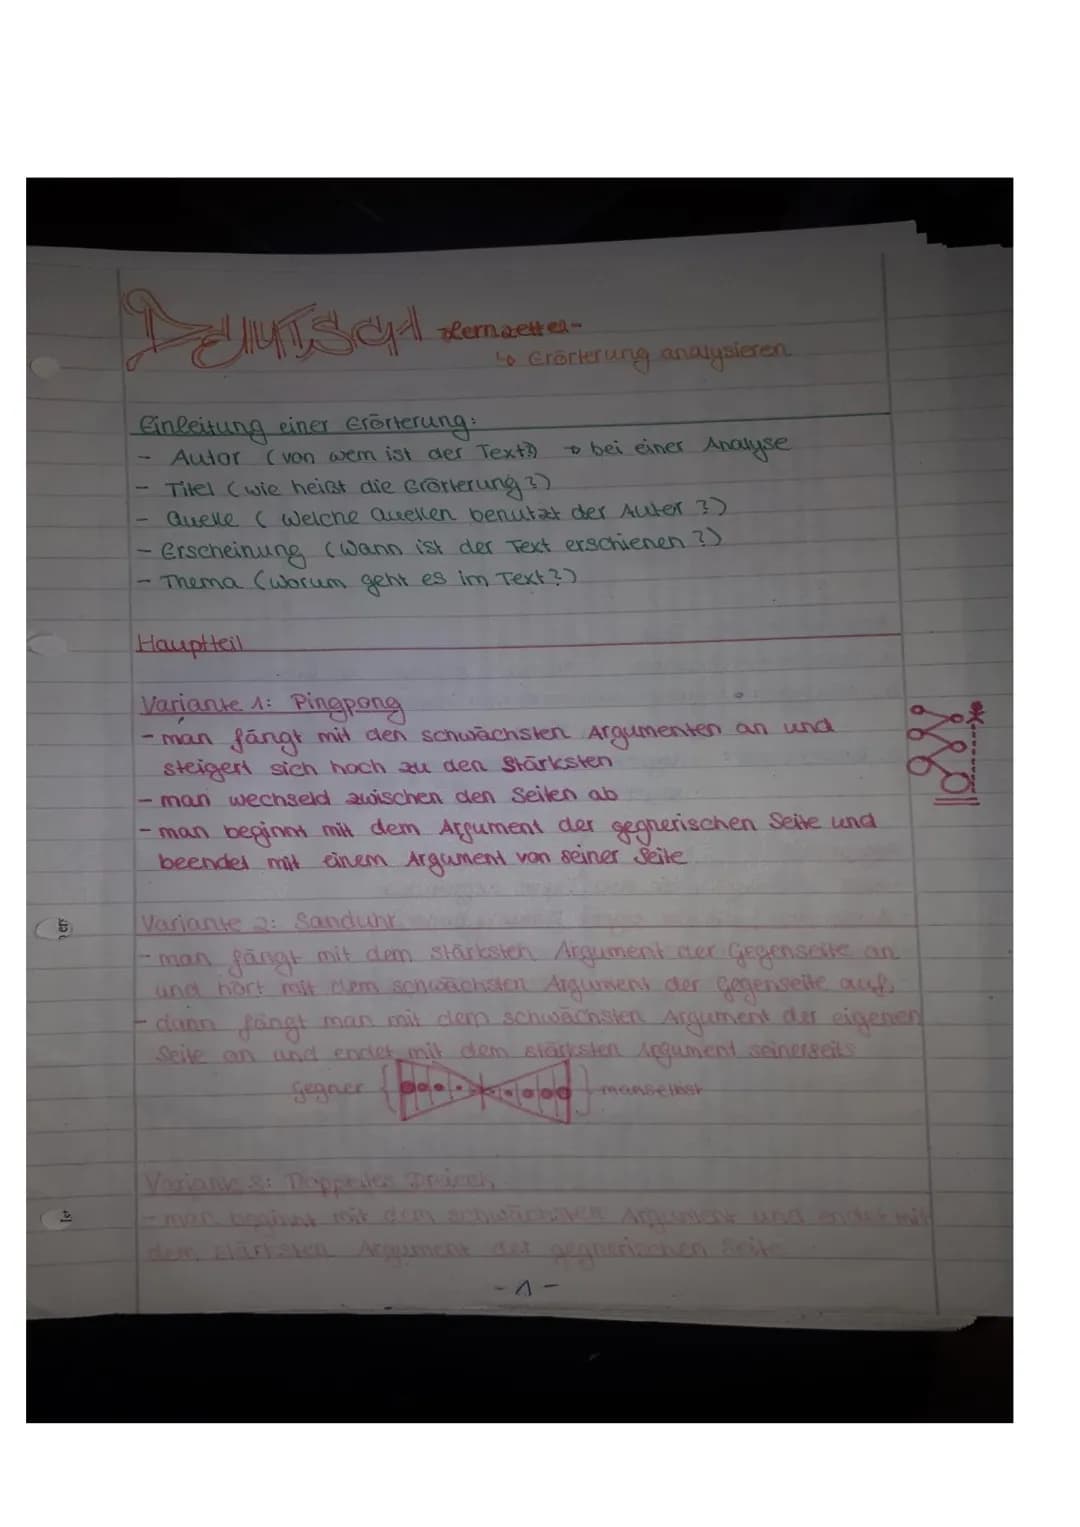 DEUTSCH Lernzettel-
↳ Erörterung analysieren
Einleitung einer Erörterung:
- Autor (von wem ist der Text?) → bei einer Analyse
- Titel (wie heißt die Erörterung?)
- Quelle (Welche Quellen benutzt der Autor?)
- Erscheinung (Wann ist der Text erschienen?)
- Thema (Worum geht es im Text?)
Hauptteil
Variante 1: Pingpong
- man fängt mit den schwächsten Argumenten an und
steigert sich hoch zu den Stärksten
- man wechseld zwischen den Seiten ab
- man beginnt mit dem Argument der gegnerischen Seite und
beendet mit einem Argument von seiner Seite
Variante 2: Sanduhr
- man fängt mit dem stärksten Argument der Gegenseite an
und hört mit dem schwächsten Argument der Gegenseite auf,
- dann fängt man mit dem schwächsten Argument der eigenen
Seite an und endet mit dem stärksten Argument seinerseits
Gegner manselbst
Variante 3: Doppeltes Dreieck
- man beginnt mit dem schwächsten Argument und endet mit
dem stärksten Argument der gegnerischen Seite
- 1 -